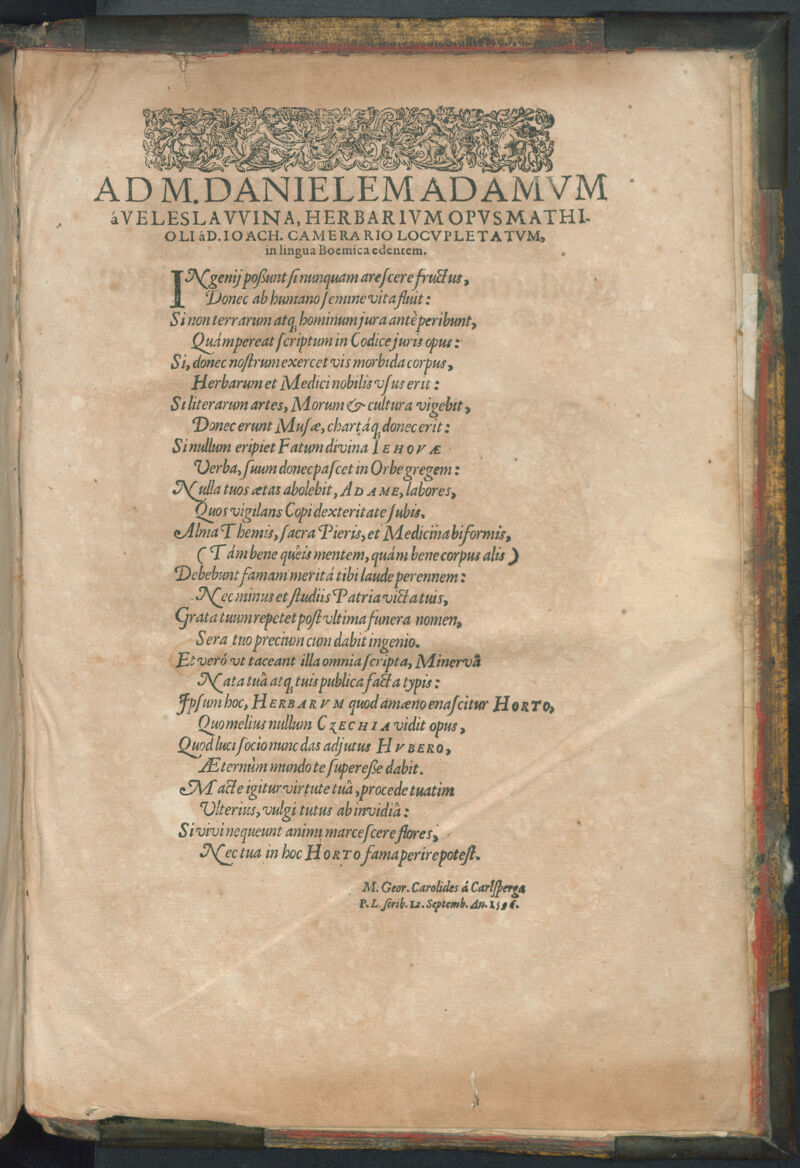 AD M. DANIELEM ADAMVM
áVELESLAVVINA, HERBARIVM OPVS MATHI-
OLI àD. IOACH. CAMERARIO LOCVPLETATVM,
in lingua Boemica edentem.
INgenij poßunt si nunquam arescere fructus,
Donec ab humano semine vita fluit:
Si non terrarum atq; hominum jura antè peribunt,
Quám pereat scriptum in Codice juris opus:
Si, donec nostrum exercet vis morbida corpus,
Herbarum et Medici nobilis vsus erit:
Si literarum artes, Morum & cultura vigebit,
Donec erunt Musæ, chartáq; donec erit:
Si nullum eripiet Fatum divina IEHOVÆ
Verba, suum donec pascet in Orbe gregem:
Nulla tuos ætas abolebit, ADAME, labores,
Quos vigilans Copi dexteritate subis.
Alma Themis, sacra Pieris, et Medicina biformis,
(Tám bene queis mentem, quám bene corpus alis)
Debebunt famam meritá tibi laude perennem:
Nec minus et studiis Patria victa tuis,
Grata tuum repetet post vltima funera nomen,
Sera tuo precium cum dabit ingenio.
Et veró vt taceant illa omnia scripta, Minervá
Nata tuá atq; tuis publica facta typis:
Ipsum hoc, HERBARVM quod amœno enascitur HORTO,
Quo melius nullum CZECHIA vidit opus,
Quod luci socio nunc das adjutus HVBERO,
Æternùm mundo te superesse dabit.
Macte igitur virtute tuá, procede tuatim
Vlterius, vulgi tutus ab invidiá:
Si vivi nequeunt animi marcescere flores,
Nec tua in hoc HORTO fama perire potest.
M. Geor. Carolides á Carlsperga
P. L. scrib. 12. Septemb. An. 1596.